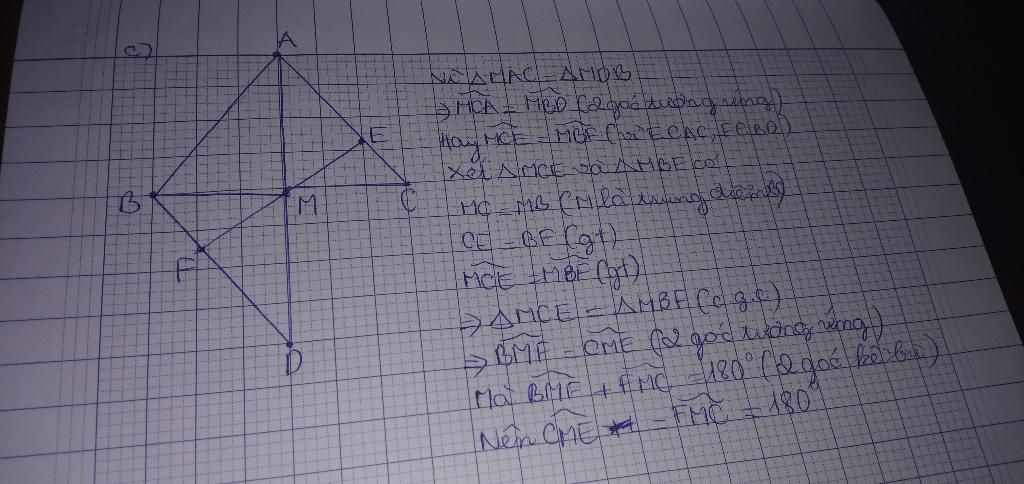 c)
A
E
B
M
C
F
D
Vì ΔMAC = ΔMDB
⇒ MCA = MBD (2 góc tương ứng)
Hay MCE = MBF (vì E ∈ AC, F ∈ BD)
Xét ΔMCE và ΔMBF có
MC = MB (M là trung điểm
CE = BF (gt)
MCE = MBF (gt)
⇒ ΔMCE = ΔMBF (c.g.c)
⇒ BMF = CME (2 góc tương ứng)
Mà BMF + FMC = 180° (2 góc kề bù)
Nên CME = FMC = 180°